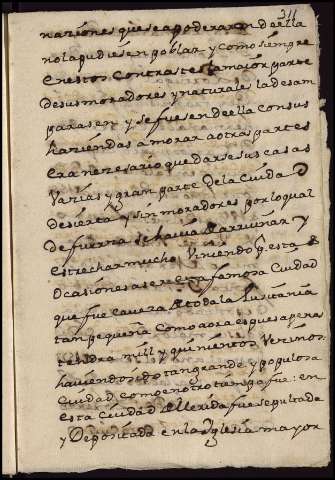 311
naziones que se apoderaron de ella
no la pudiesen poblar y como siempre
en estos Contrastes la maior parte
de sus moradores y naturales la desam
parasen y se fuesen de ella con sus
haziendas a morar a otras partes
era nezesario quedarse sus casas
Vazias y gran parte de la ciudad
desierta y sin moradores por lo qual
de fuerza se havia de arruinar y
estrechar mucho Viniendo por estas
Ocasiones a ser esta famosa Ciudad
que fue cavеza de toda la Lusitania
tan pequeña como aora es que apenas
tendra mill y quinientos Vezinos
haviendo sido tan grande y populosa
Ciudad como en otro tiempo fue: en
esta Ciudad de Merida fue sepultada
y Depositada en la Yglesia mayor